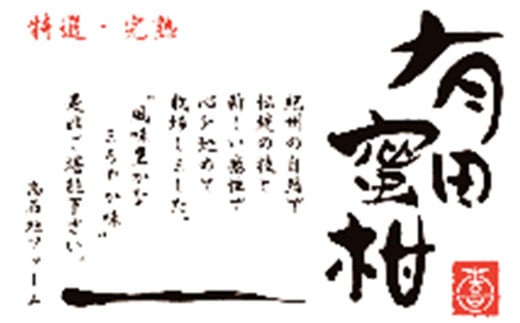 特選・完熟
有田
蜜柑
紀州の自然で
伝統の技と
新しい感性で
心を込めて
栽培しました。
"風味豊かな
まろやか味"
是非ご堪能下さい。